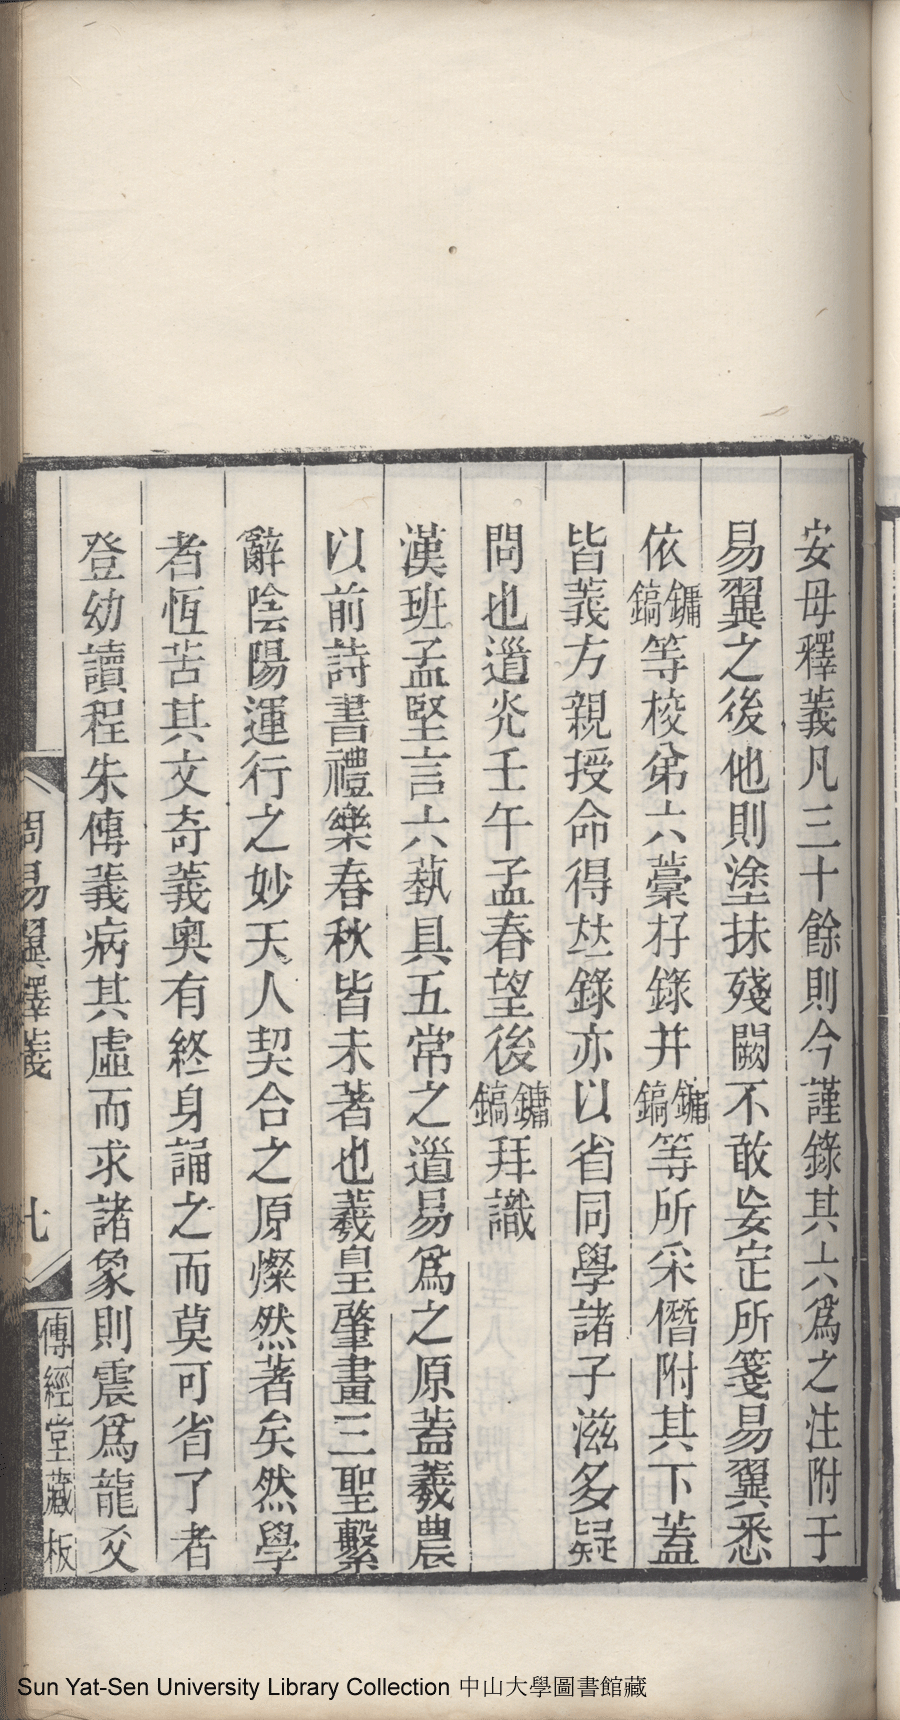 安毋釋義凡三十餘則今謹錄其六爲之注附于
易翼之後他則塗抹殘闕不敢妄定所箋易翼悉
依鏞鎬等校弟六藁杍錄并鏞鎬等所采僭附其下蓋
皆義方親授命得夶錄亦以省同學諸子滋多疑
問也道光壬午孟春望後鏞鎬拜識
漢班孟堅言六蓺具五常之道易爲之原蓋羲農
以前詩書禮樂春秋皆未著也羲皇肇畫三聖繫
辭陰陽運行之妙天人契合之原燦然著矣然學
者恆苦其文奇義奧有終身誦之而莫可省了者
登幼讀程朱傳義病其虛而求諸象則震爲龍爻
周易翼釋義
傳經堂藏板
Sun Yat-Sen University Library Collection 中山大學圖書館藏